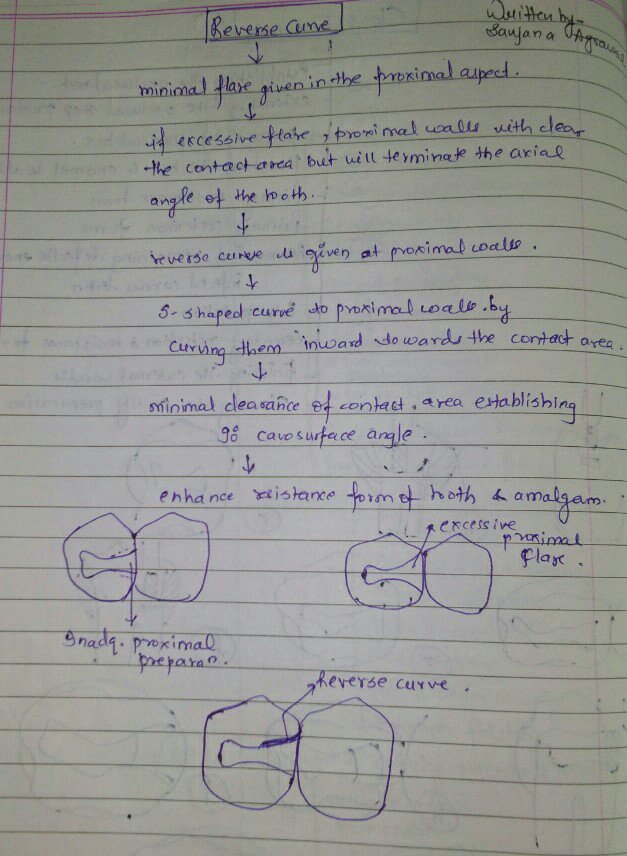 Reverse Curve
Written by-
Sanjana Agrawal
minimal flare given in the proximal aspect.
if excessive flare, proximal walls with clear
the contact area but will terminate the axial
angle of the tooth.
reverse curve is given at proximal walls.
S-shaped curve to proximal walls by
curving them inward towards the contact area.
minimal clearance of contact area establishing
90° cavosurface angle.
enhance resistance form of tooth & amalgam.
excessive
proximal
flare.
Inadq. proximal
preparan.
Reverse curve.